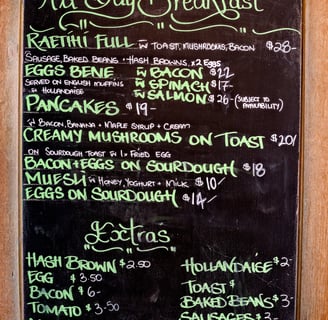 All Day Breakfast
RAETIHI FULL w TOAST, MUSHROOMS, BACON $28-
SAUSAGE, BAKED BEANS + HASH BROWNS, x2 EGGS
EGGS BENE w BACON $22
SERVED ON ENGLISH MUFFINS w SPINACH $17-
w HOLLANDAISE w SALMON $26- (SUBJECT TO AVAILABILITY)
PANCAKES $19-
w BACON, BANANA + MAPLE SYRUP + CREAM
CREAMY MUSHROOMS ON TOAST $20/
ON SOURDOUGH TOAST w 1x FRIED EGG
BACON+EGGS ON SOURDOUGH $18
MUESLI w HONEY, YOGHURT + MILK $10/
EGGS ON SOURDOUGH $14/
Extras
HASH BROWN $2.50
EGG $3.50
BACON $6-
TOMATO $3.50
HOLLANDAISE $2-
TOAST $
BAKED BEANS $3-
SAUSAGES $3-